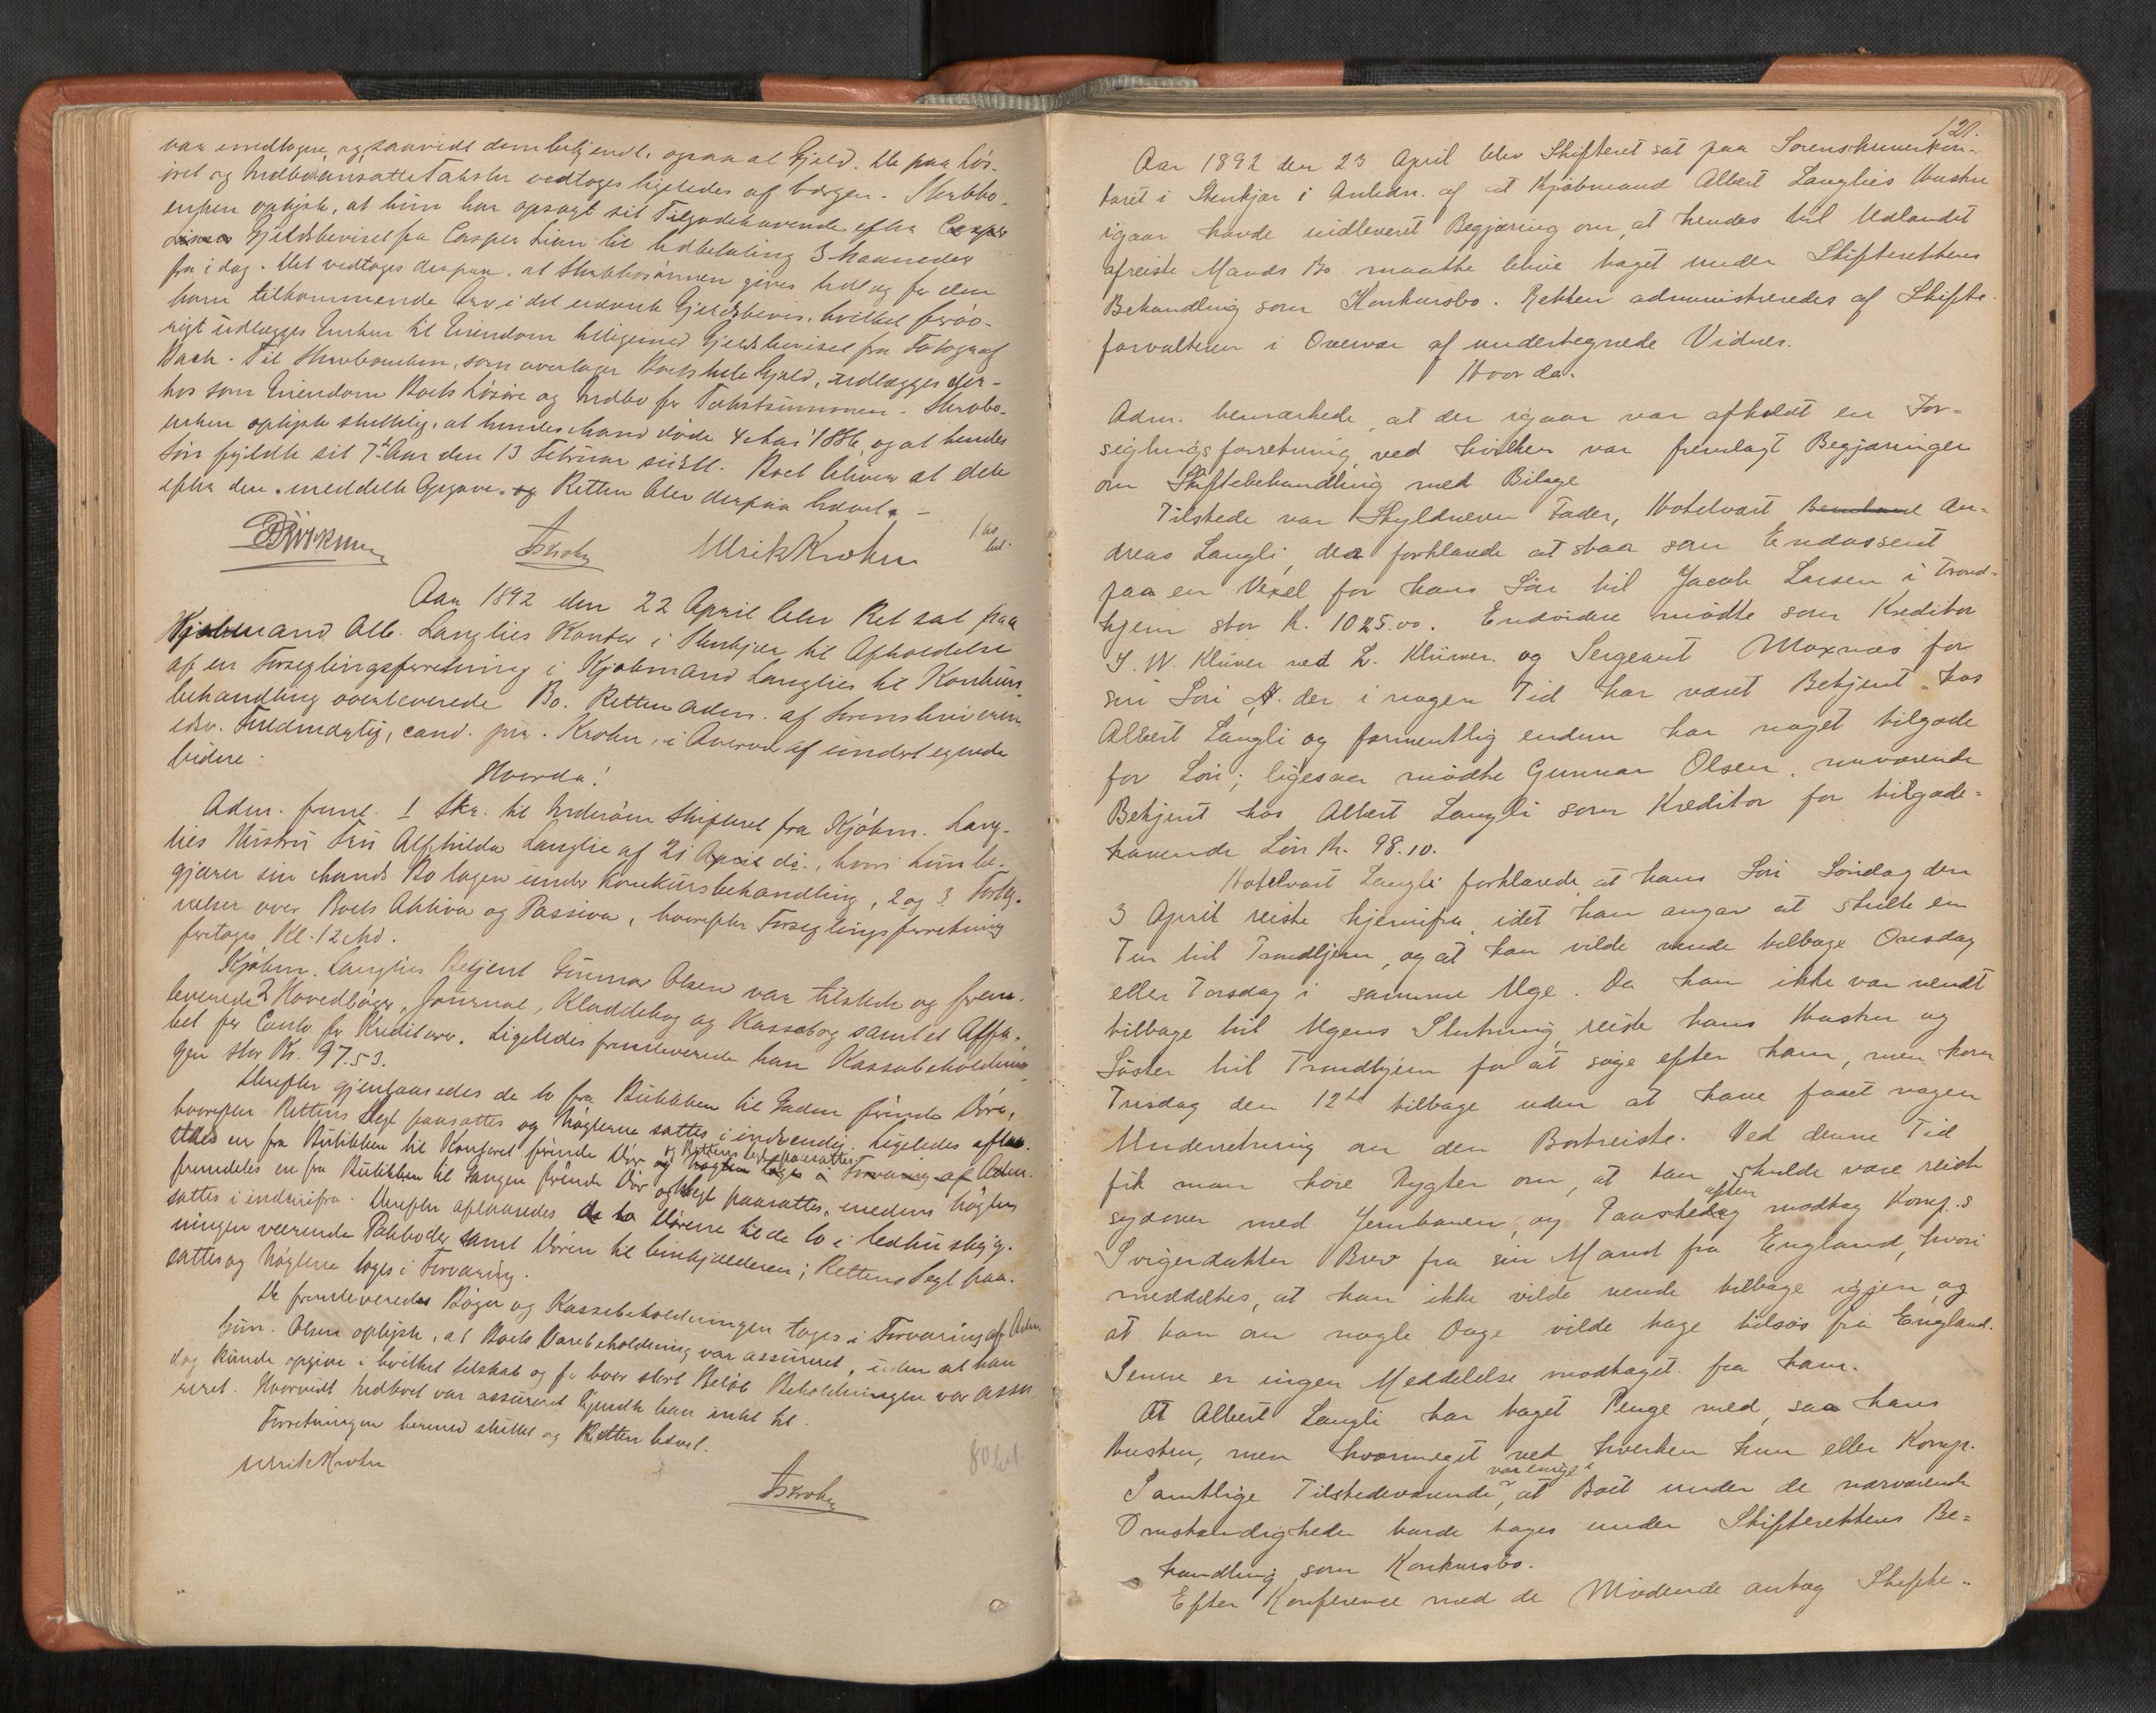 var medtagen, og saavidt dem bekjendt, ogsaa al Gjeld. De paa Lös-
öret og Indboet ansatte Takster vedtoges ligeledes af Værgen. Skrabbo-
enken oplyste, at hun har opsagt sit Tilgodehavende efter Casper
Gjeldsbeviset fra Casper Lian til Udbetaling 3 Maaneder
fra i dag. Det vedtoges derpaa, at gives Udlæg for den
ham tilkommende Arv i det nævnte Gjeldsbevis, hvilket forøv-
rigt udlægges Enken til Eiendom tilligemed Gjeldsbeviset fra Fotograf
Bach. Til som overtager Boets hele Gjeld, udlægges der-
hos som Eiendom Boets Lösöre og Indbo for Takstsummen.
enken oplyste at hendes Mand döde 4 Mai 1886, og at hendes
Sön fyldte sit 7de Aar den 13 Februar sidstl. Boet bliver at dele
efter den meddelte Opgave. og Retten blev derpaa hævet. –
Ulrik Krohn
Aar 1892 den 22 April blev Ret sat paa
Kjøbmand Alb. Langlies Kontor i Stenkjær til Afholdelse
af en Forseglingsforretning i Kjøbmand Langlies til Konkurs-
behandling overleverede Bo. Retten adm. af Sorenskriverens
edsv. Fuldmægtig, cand. jur. Krohn, i Overvær af undertegnede
Vidne:
Hvorda!
Adm. freml. 1 Skr. til Inderöens Skifteret fra Kjöbm. Lang-
lies Hustru Fru Alfhilda Langlie af 21 April ds., hvori hun be-
gjærer sin Mands Bo tagen under Konkursbehandling, 2 og 3. Forteg-
nelser over Boets Aktiva og Passiva, hvorefter Forseglingsforretning
foretoges Kl. 12 Md.
Kjöbm. Langlies Betjent Gunnar Olsen var tilstede og frem-
leverede 2 Hovedböger, Journal, Kladdebog og Kassabog samt et Alfa-
bet for Conto for Kreditorer. Ligeledes fremleverede han Kassabeholdnin-
gen stor Kr. 97.53.
Derefter gjenlaasedes de to fra Butikken til Gaden förende Döre,
hvorefter Rettens Segl paasattes og Nöglerne sattes i indvendig. Ligeledes aflaa-
stes en fra Butikken til Kontoret förende Dör og Rettens Segl paasattes og Nöglen toges i Forvaring af Adm.
fremdeles en fra Butikken til Gangen förende Dör og Segl paasattes, medens Nöglen
sattes i indenifra. Derefter aflaasedes de to Dörene til de to i
ningen værende Pakboder samt Dören til Vinkjælderen; Rettens Segl paa-
sattes og Nöglerne toges i Forvaring.
De fremleverede Böger og Kassebeholdningen toges i Forvaring af Adm.
Gun. Olsen oplyste, at Boets Varebeholdning var assureret, uden at han
dog kunde opgive i hvilket Selskab og for hvor stort Belöb Beholdningen var assu-
reret. Hvorvidt Indboet var assureret kjendte han intet til.
Forretningen hermed sluttet og Retten hævet.
Ulrik Krohn
121.
Aar 1892 den 23 April blev Skifteret sat paa Sorenskriverkon-
toret i Stenkjær i Anledn. af at Kjøbmand Albert Langlies Hustru
igaar havde indleveret Begjæring om, at hendes til Udlandet
afreiste Mands Bo maatte blive taget under Skifterettens
Behandling som Konkursbo. Retten administreredes af Skifte-
forvalteren i Overvær af undertegnede Vidner.
Hvorda.
Adm. bemærkede, at der igaar var afholdt en For-
seglingsforretning, ved hvilken var fremlagt Begjæringen
om Skiftebehandling med Bilage
Tilstede var Skyldneren Fader, Hotelvært An-
dreas Langli, der forklarede at staa som Endossent
paa en Vexel for hans Sön til Jacob Larsen i Trond-
hjem stor K. 1025.00. Endvidere mödte som Kreditor
J. W. Klüver ved L. Klüver. og Sergeant Moxnæs for
sin Sön A. der i nogen Tid har været Betjent hos
Albert Langli og formentlig endnu har noget tilgode
for Lön; ligesaa mödte Gunnar Olsen, nuværende
Betjent hos Albert Langli som Kreditor for tilgode-
havende Lön K. 98.10.
Hotelvært Langli forklarede, at hans Sön Söndag den
3 April reiste hjemifra, idet han angav at skulle en
Tur til Trondhjem, og at han vilde vende tilbage Onsdag
eller Torsdag i samme Uge. Da han ikke var vendt
tilbage til Ugens Slutning, reiste hans Hustru og
Söster til Trondhjem for at söge efter ham, men kom
Tirsdag den 12te tilbage uden at have faaet nogen
Underretning om den Bortreiste. Ved denne Tid
fik man höre Rygter om, at han skulde være reist
sydover med Jernbanen, og Paaskeaften modtog Komp.s
Svigerdatter Brev fra sin Mand fra England, hvori
meddeltes, at han ikke vilde vende tilbage igjen, og
at han om nogle Dage vilde tage tilsös fra England.
Senere er ingen Meddelelse modtaget fra ham.
At Albert Langli har taget Penge med, saa hans
Hustru, men hvormeget ved hverken hun eller Komp.
Samtlige Tilstedeværende var enige i, at Boet under de nærværende
Omstændigheder burde tages under Skifterettens Be-
handling som Konkursbo.
Efter Konference med de Mödende antog Skifte-